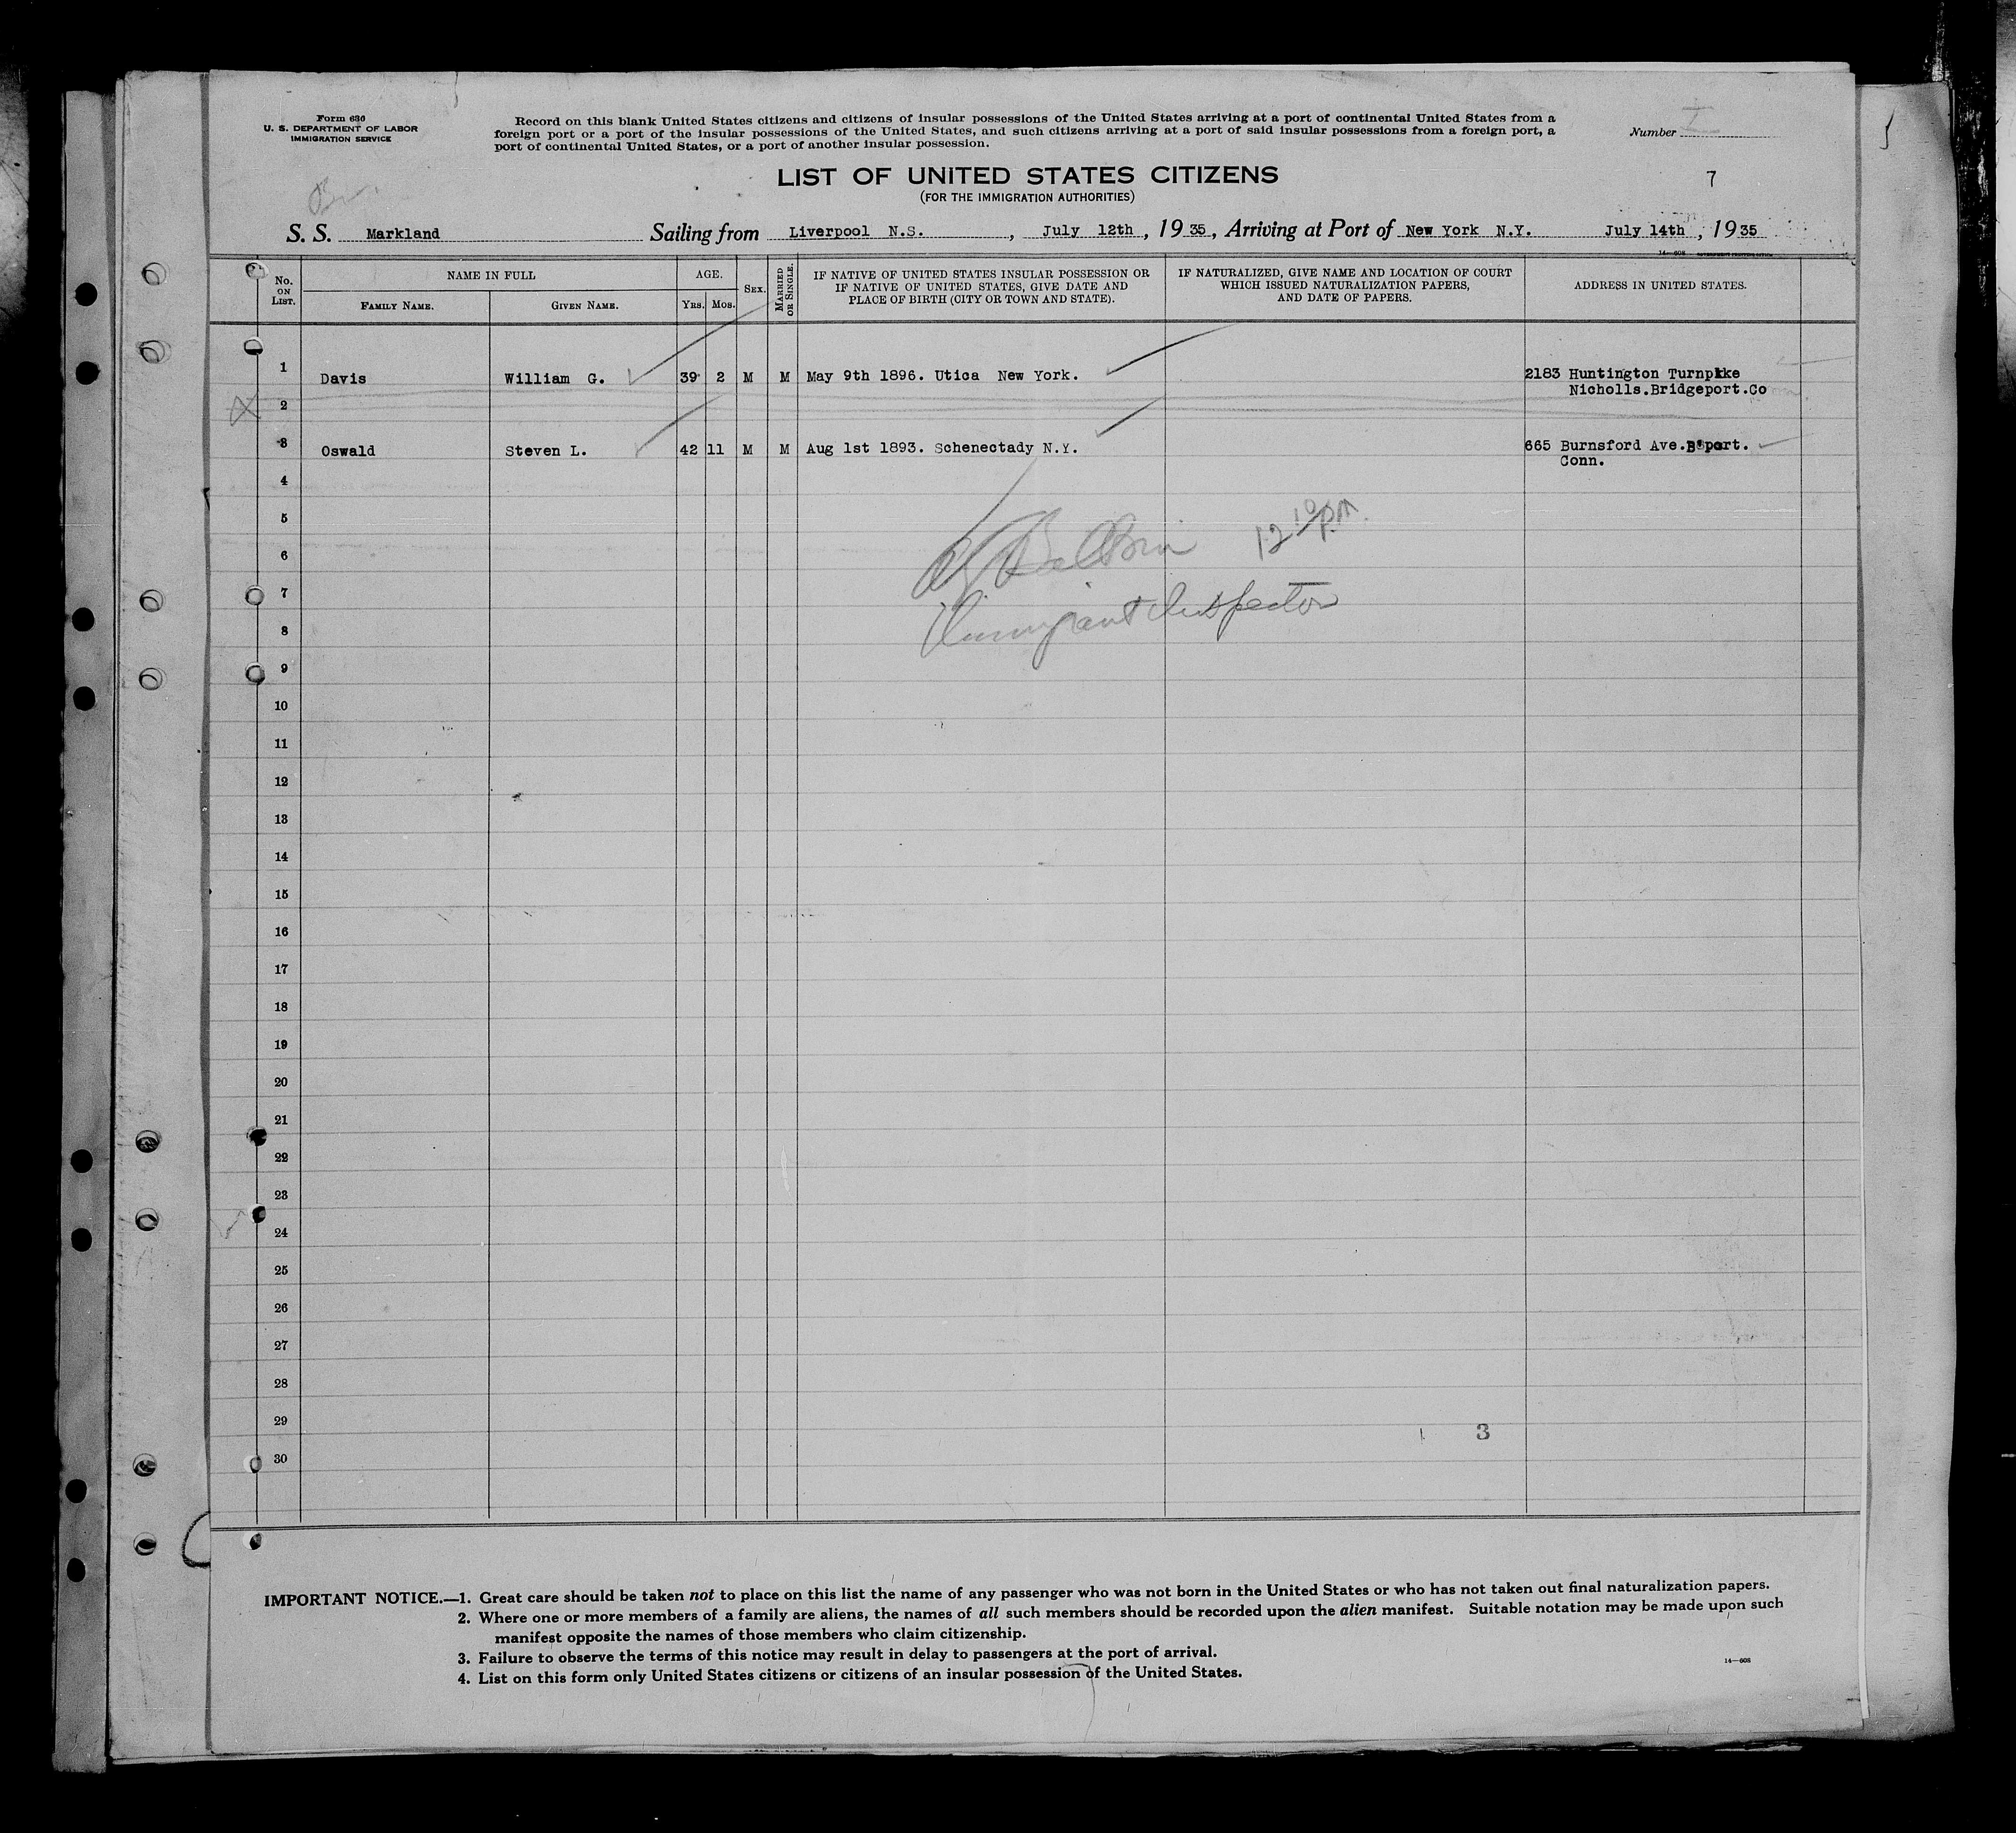 Form 630
U. S. DEPARTMENT OF LABOR
IMMIGRATION SERVICE
Record on this blank United States citizens and citizens of insular possessions of the United States arriving at a port of continental United States from a
foreign port or a port of the insular possessions of the United States, and such citizens arriving at a port of said insular possessions from a foreign port, a
port of continental United States, or a port of another insular possession.
Number
LIST OF UNITED STATES CITIZENS
(FOR THE IMMIGRATION AUTHORITIES)
7
S. S. Markland Sailing from Liverpool N.S. , July 12th , 1935 , Arriving at Port of New York N.Y. July 14th , 1935
14—608 GOVERNMENT PRINTING OFFICE
No. ON LIST.
NAME IN FULL
FAMILY NAME.
GIVEN NAME.
AGE.
YRS.
MOS.
SEX.
MARRIED OR SINGLE.
IF NATIVE OF UNITED STATES INSULAR POSSESSION OR
IF NATIVE OF UNITED STATES, GIVE DATE AND
PLACE OF BIRTH (CITY OR TOWN AND STATE).
IF NATURALIZED, GIVE NAME AND LOCATION OF COURT
WHICH ISSUED NATURALIZATION PAPERS,
AND DATE OF PAPERS.
ADDRESS IN UNITED STATES.
1 Davis William G. 39 2 M M May 9th 1896. Utica New York. 2183 Huntington Turnpike
Nicholls.Bridgeport.Co
2
3 Oswald Steven L. 42 11 M M Aug 1st 1893. Schenectady N.Y. 665 Burnsford Ave.B'port.
Conn.
4
5
12 10 P.M.
6
7
Immigrant Inspector
8
9
10
11
12
13
14
15
16
17
18
19
20
21
22
23
24
25
26
27
28
29
3
30
IMPORTANT NOTICE.—1. Great care should be taken not to place on this list the name of any passenger who was not born in the United States or who has not taken out final naturalization papers.
2. Where one or more members of a family are aliens, the names of all such members should be recorded upon the alien manifest. Suitable notation may be made upon such
manifest opposite the names of those members who claim citizenship.
3. Failure to observe the terms of this notice may result in delay to passengers at the port of arrival.
4. List on this form only United States citizens or citizens of an insular possession of the United States.
14—608